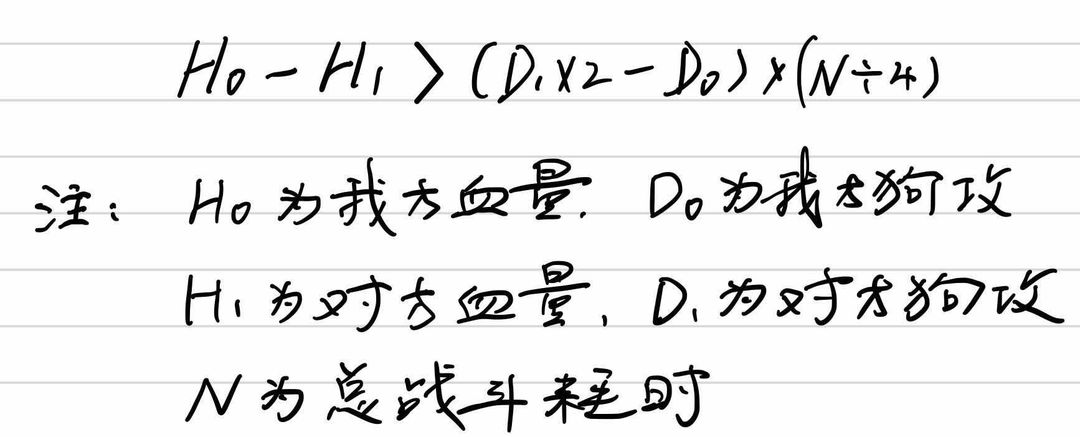 H₀ - H₁ > (D₁×2 - D₀)×(N÷4)
注: H₀为我方血量. D₀为我方狗攻
H₁为对方血量, D₁为对方狗攻
N为总战斗耗时